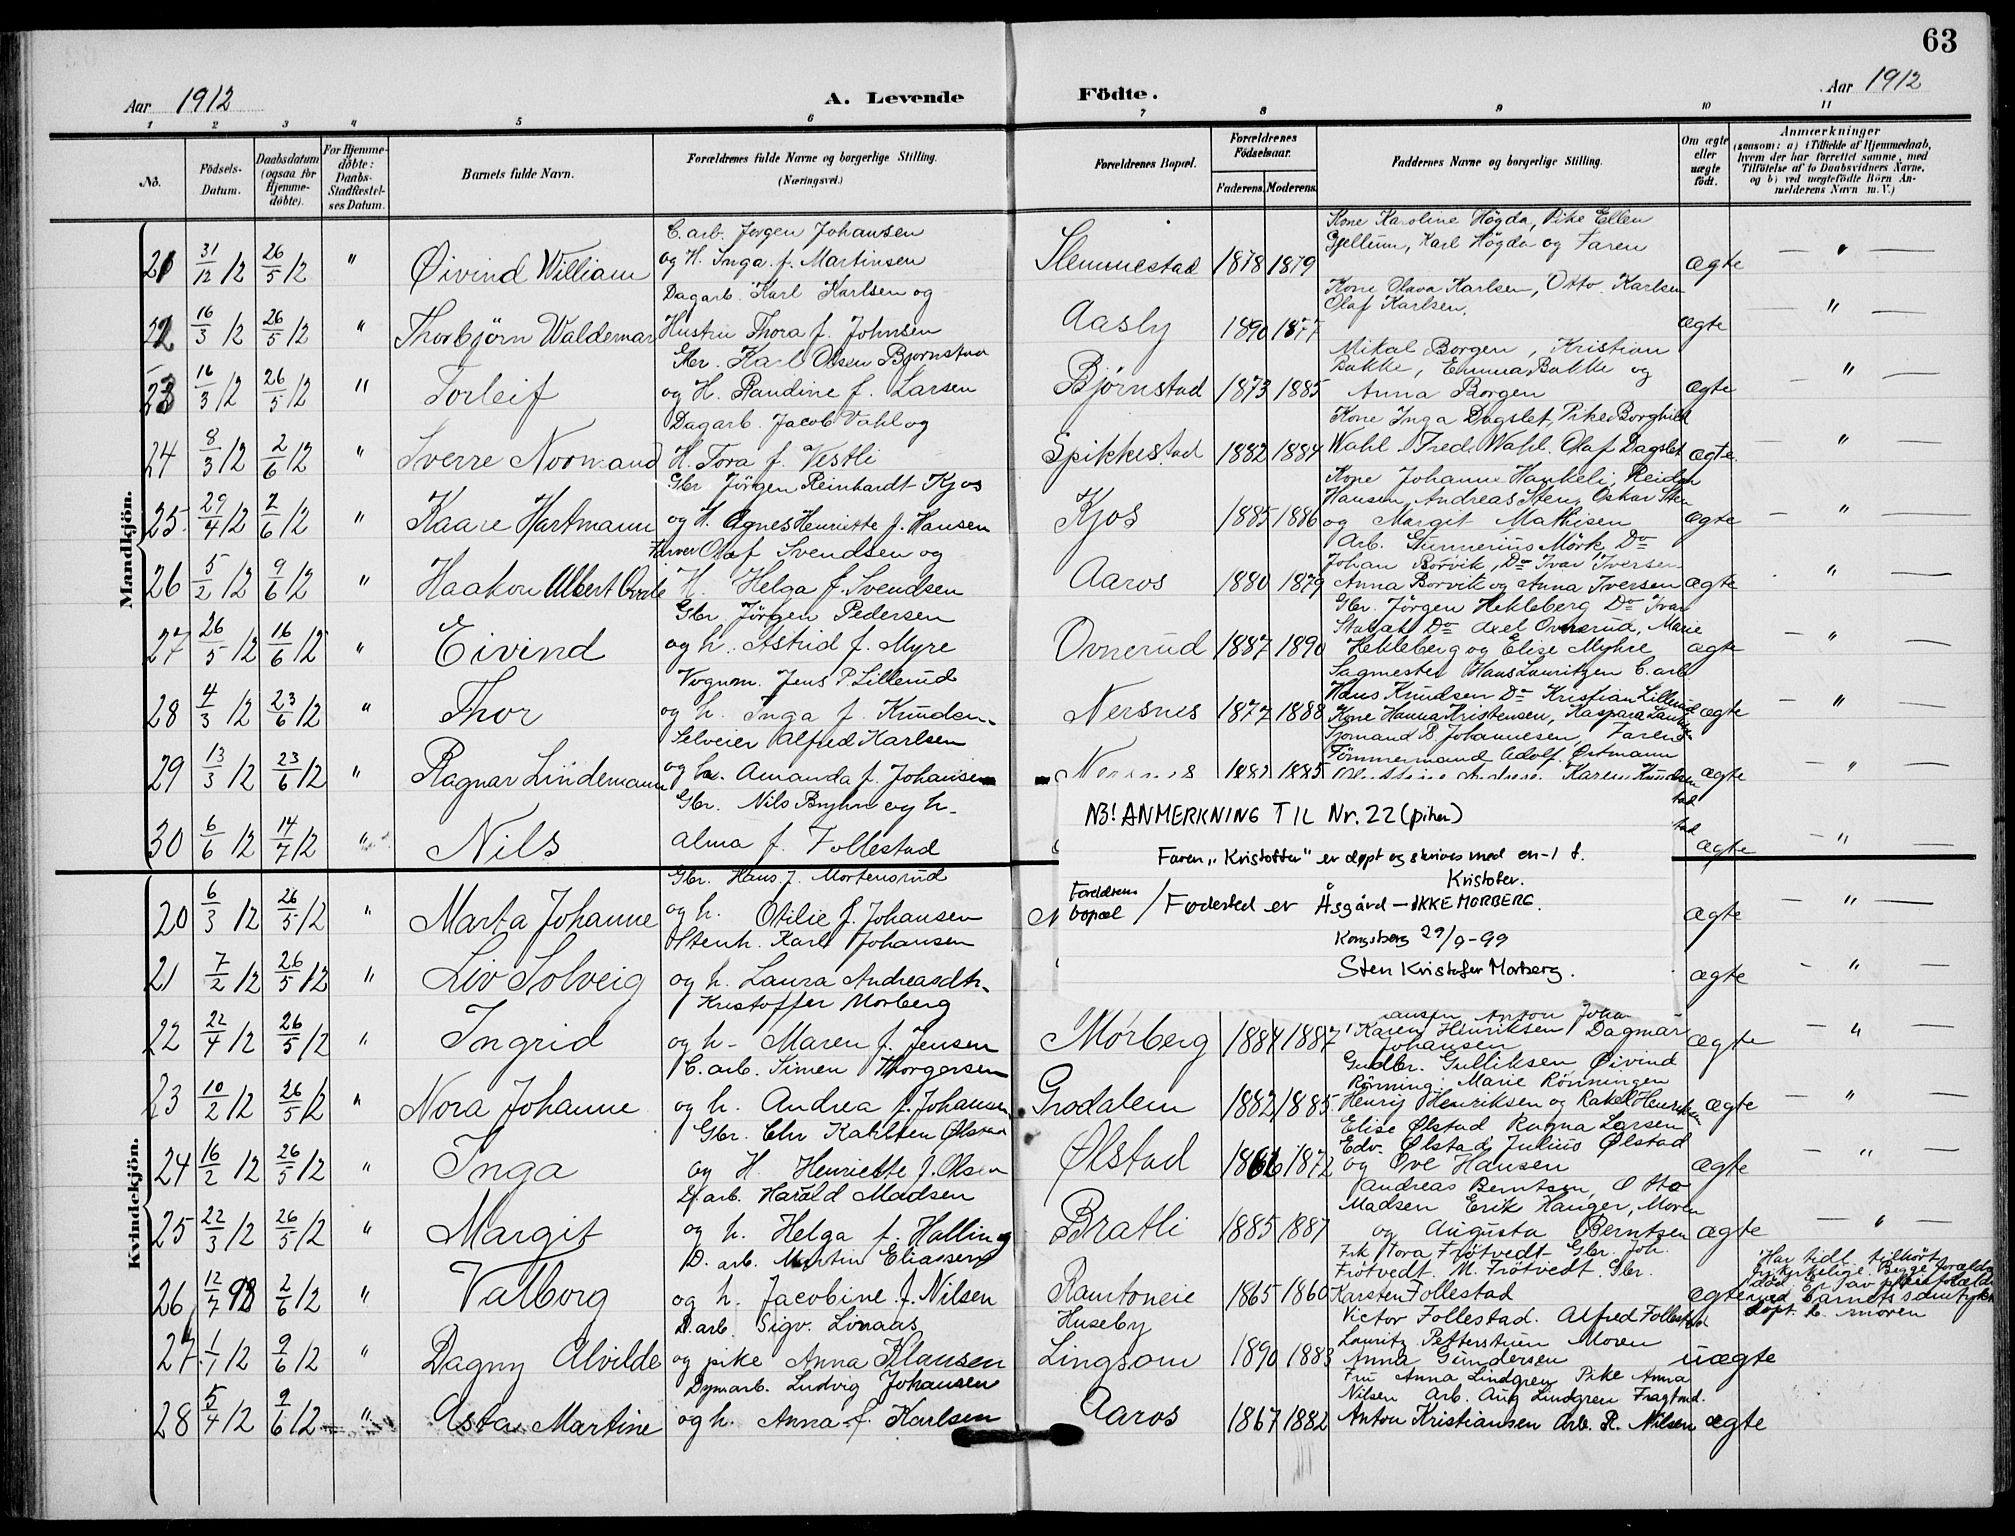 63
Aar 1912
A. Levende
Födte.
Aar 1912
1 2 3 4 5 6 7 8 9 10 11
No.
Födsels-Datum.
Daabsdatum (ogsaa for Hjemmedöbte).
For Hjemmedöbte: Daabs-Stadfæstelses Datum.
Barnets fulde Navn.
Forældrenes fulde Navne og borgerlige Stilling. (Næringsvei.)
Forældrenes Bopæl.
Forældrenes Födselsaar. Faderens. Moderens.
Faddernes Navne og borgerlige Stilling.
Om ægte eller uægte födt.
Anmærkninger (saasom: a) i Tilfælde af Hjemmedaab, hvem der har forrettet samme, med Tilföielse af to Daabsvidners Navne, og b) ved uægtefödte Börn Anmelderens Navn m. V.)
Mandkjön.
21 31/12 12 26/5 12 " Øivind William C. arb. Jørgen Johansen og H. Inga f. Martinsen Slemmestad 1878 1879 Kone Karoline Högda, Pike Ellen Gjellum, Karl Högda og Faren ægte — " —
22 16/3 12 26/5 12 " Thorbjörn Waldemar Dagarb. Karl Karlsen og Hustru Thora f. Johnsen Aasly 1890 1877 Kone Olava Karlsen, Otto Karlsen Olaf Karlsen. ægte — " —
23 16/3 12 26/5 12 " Torleif Gbr. Karl Olsen Bjørnstad og H. Randine f. Larsen Bjørnstad 1873 1885 Mikal Borgen, Kristian Bakke, Emma Bakke og Anna Borgen ægte — " —
24 8/3 12 2/6 12 " Sverre Normand Dagarb. Jacob Vahl og H. Tora f. Vestli Spikkestad 1882 1884 Kone Inga Dagslet, Pike Borghild Wahl Fred. Wahl. Olaf Dagslet ægte — " —
25. 29/4 12 2/6 12 " Kaare Hartmann Gbr Jörgen Reinhardt Kjos og H. Agnes Henriette f. Hansen Kjos 1885 1886 Kone Johanne Hankeli, Reidar Hansen, Andreas Sten, Oskar Sten og Margit Mathisen ægte — " —
26 5/2 12 9/6 12 " Haakon Albert Farver Olaf Svendsen og H. Helga f. Svendsen Aaros 1880 1879 Arb. Gunnerius Mörk, Do Johan Borvik, Do Ivar Iversen Anna Borvik og Anna Iversen ægte — " —
27 26/5 12 16/6 12 " Eivind Gbr. Jörgen Pedersen og h. Astrid f. Myre Ovnerud 1887 1890 Gbr. Jörgen Hekleberg Do Ivar Do Axel Ovnerud, Marie Hekleberg og Elise Myhre ægte — " —
28 4/3 12 23/6 12 " Thor Vognm. Jens P. Lillerud og h. Inga f. Knudsen Nersnes 1877 1888 Sagmester Hans Lauritzen C. arb Hans Knudsen Do Kristian Lillerud Kone Hanna Kristensen, Kaspara ægte — " —
29 13/3 12 23/6 12 " Ragnar Lindemann Selveier Alfred Karlsen og h. Amanda f. Johansen Nersnes 1882 1885 Sjomand B. Johannesen, Faren Tömmermand Adolf Ostmann Karen Knudsen ægte — " —
30 6/6 12 14/7 12 " Nils Gbr. Nils Bryhn og h. Alma f. Follestad ægte — " —
NB! ANMERKNING TIL Nr. 22 (piker)
Faren „Kristoffer" er døpt og skrives med en-1 f.
Kristofer.
Foreldrens bopæl / Fødested er Åsgård — IKKE MORBERG.
Kongsberg 29/9-99
Sten Kristofer Morberg.
Kvindekjön.
20 6/3 12 26/5 12 " Marta Johanne Gbr. Hans J. Mortensrud og h. Otilie f. Johansen ægte — " —
21 7/2 12 26/5 12 " Liv Solveig Ostenh. Karl Johansen og h. Laura Andreasdtr. ægte — " —
22 22/4 12 26/5 12 " Ingrid Kristoffer Morberg og h. Maren f. Jensen Morberg 1884 1887 Anton Joha Karen Henriksen Dagmar Johansen ægte — " —
23 10/2 12 26/5 12 " Nora Johanne C. arb. Simen Thorgersen og h. Andrea f. Johansen Grodalem 1882 1885 Gudbr. Gulliksen Øivind Rönning. Marie Rönningen Henrij Henriksen og Rakel Henriksen ægte — " —
24 16/2 12 26/5 12 " Inga Gbr. Chr Karlsen Ølstad og H. Henriette f. Olsen Ølstad 1866 1872 Elise Ølstad Ragna Larsen Edv. Ølstad, Julius Ølstad og Ove Hansen ægte — " —
25 22/3 12 26/5 12 " Margit D. arb. Harald Madsen og h. Helga f. Halling Bratli 1885 1887 Andreas Berntsen, Otto Madsen Erik Hanger, Moren og Augusta Berntsen ægte — " —
26 12/7 98 2/6 12 " Valborg D. arb. Martin Eliassen og h. Jacobine f. Nilsen Ramtoneie 1865 1860 Frk Tora Frötvedt Gbr. Joh. Frötvedt. M. Frötvedt. Gbr. Karsten Follestad ægte Har tidl. tilhört frikirkelige. Begge forældre död. Er av pleieforældre med barnets samtykke döpt.
27. 1/1 12 9/6 12 " Dagny Alvilde D. arb. Sigv. Linaas og pike Anna Klausen Huseby Lingsom 1890 1883 Victor Follestad. Alfred Follestad Lauritz Petterstuen Moren Anna Gundersen uægte moren
28 5/4 12 9/6 12 " Asta Martine Dynarb. Ludvig Johansen og h. Anna f. Karlsen Aaros 1867 1882 Fru Anna Lindgren Pike Anna Nilsen Arb. Aug Lindgren Fragtmd. Anton Kristiansen Arb. R. Nilsen ægte